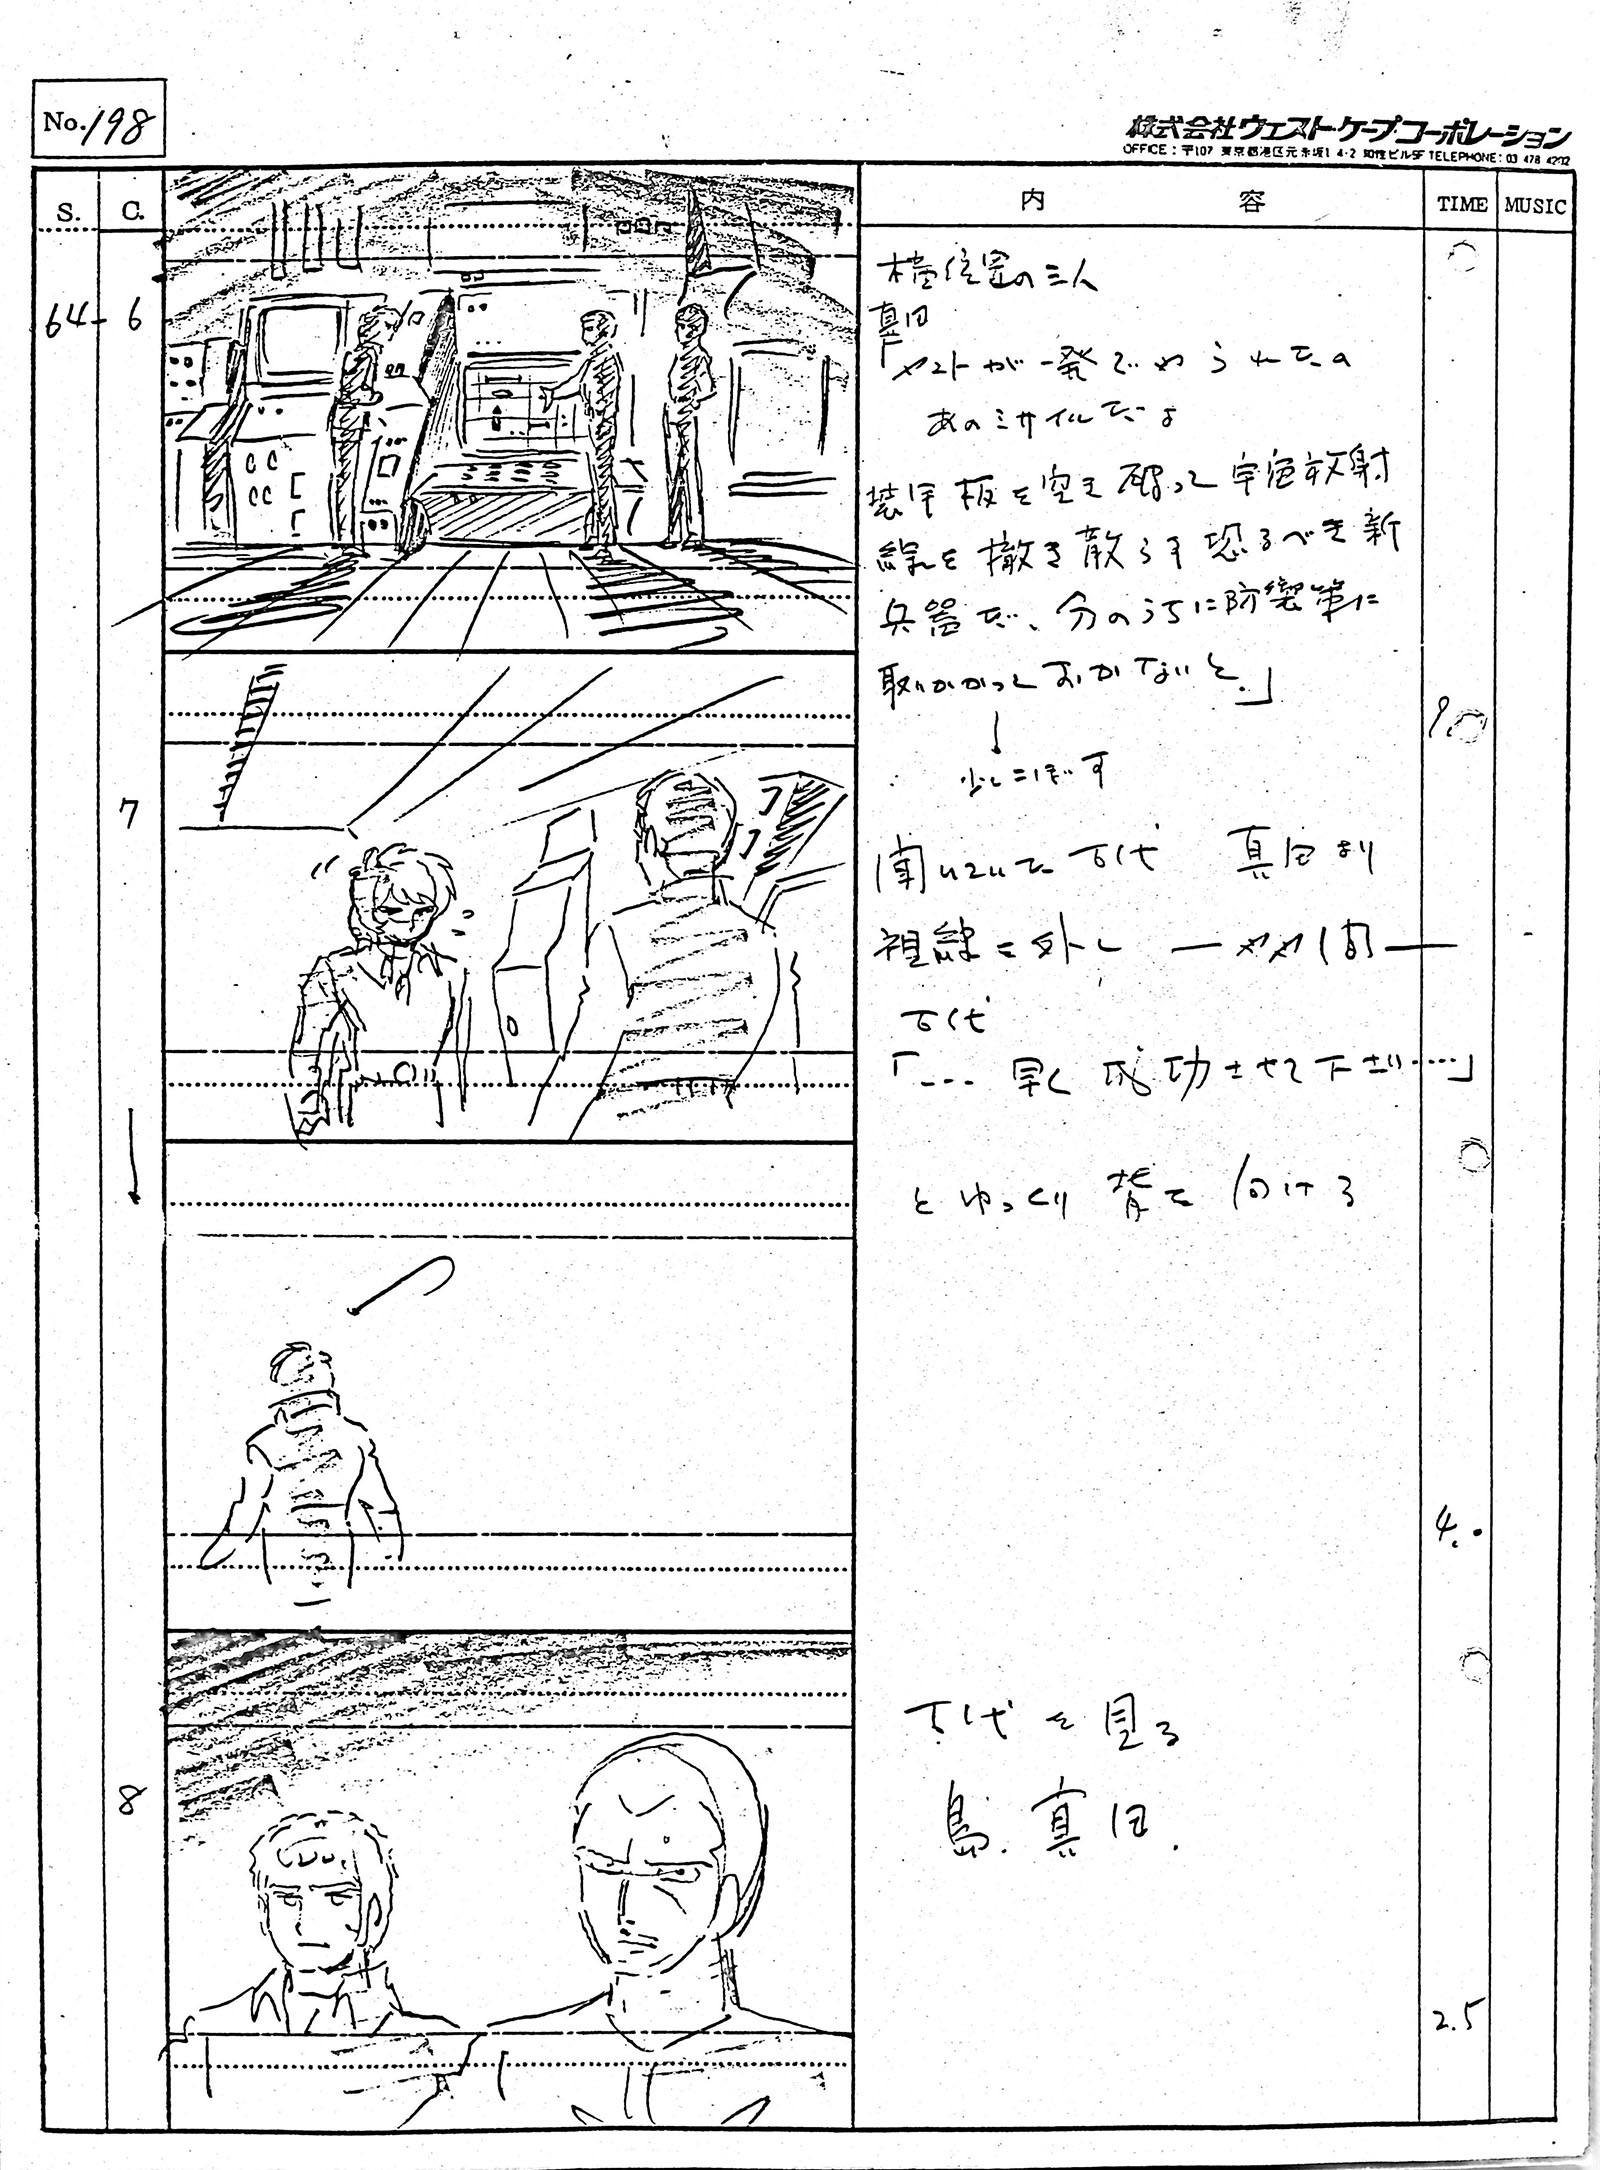 No.198
株式会社ウェスト・ケープ・コーポレーション
OFFICE：〒107 東京都港区元赤坂1-4-2 TELEPHONE：03 478 4202
S. C. 内容 TIME MUSIC
64-6
位置の三人
真田
「ヤマトが一発でやられたの
あのミサイルだよ
装甲板を突き破って宇宙放射
線を撒き散らす恐るべき新
兵器だ、今のうちに防禦策に
取りかかっておかないと.」
少しこぼす
9.0
7
聞いていた古代 真田より
視線を外し ―ヤヤ間―
古代
「… 早く成功させて下さい……」
とゆっくり背を向ける
4.
8
古代を見る
島.真田.
2.5